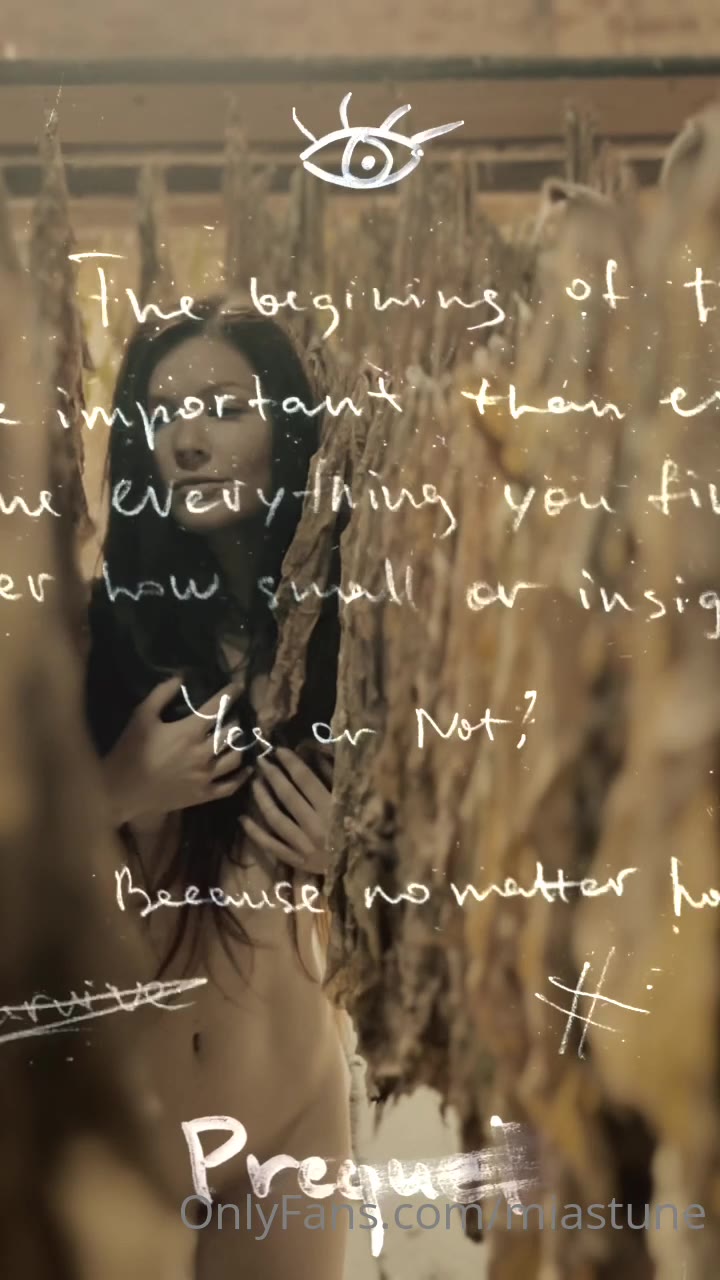 The begining of t
important than e
me everything you fi
er how small or insig
Yes or Not?
Because no matter ho
urvive
#
Prequel
OnlyFans.com/miastune